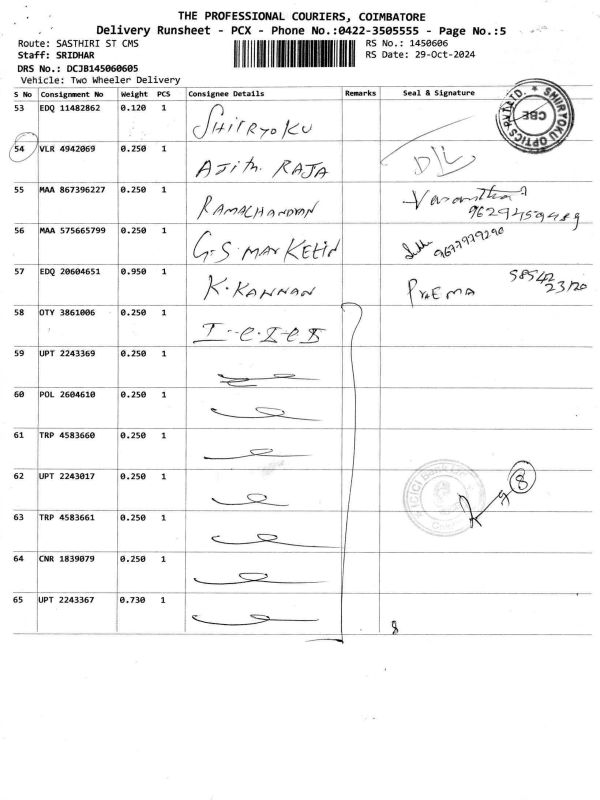 THE PROFESSIONAL COURIERS, COIMBATORE
Delivery Runsheet - PCX - Phone No.:0422-3505555 - Page No.:5
Route: SASTHIRI ST CMS RS No.: 1450606
Staff: SRIDHAR RS Date: 29-Oct-2024
DRS No.: DCJB145060605
Vehicle: Two Wheeler Delivery
S No Consignment No Weight PCS Consignee Details Remarks Seal & Signature
53 EDQ 11482862 0.120 1 SHIIRYOKU
SHIIRYOKU OPTICS PVT.LTD. * CBE
54 VLR 4942069 0.250 1 AJith. RAJA D/L
55 MAA 867396227 0.250 1 RAMACHANDRAN Vasantha
9629459489
56 MAA 575665799 0.250 1 G.S MARKETIN 9677979290
57 EDQ 20604651 0.950 1 K.KANNAN PREMA 58542
23120
58 OTY 3861006 0.250 1 I-C-I-C-I
59 UPT 2243369 0.250 1
60 POL 2604610 0.250 1
61 TRP 4583660 0.250 1
62 UPT 2243017 0.250 1 ICICI Bank 8
63 TRP 4583661 0.250 1
64 CNR 1839079 0.250 1
65 UPT 2243367 0.730 1
8